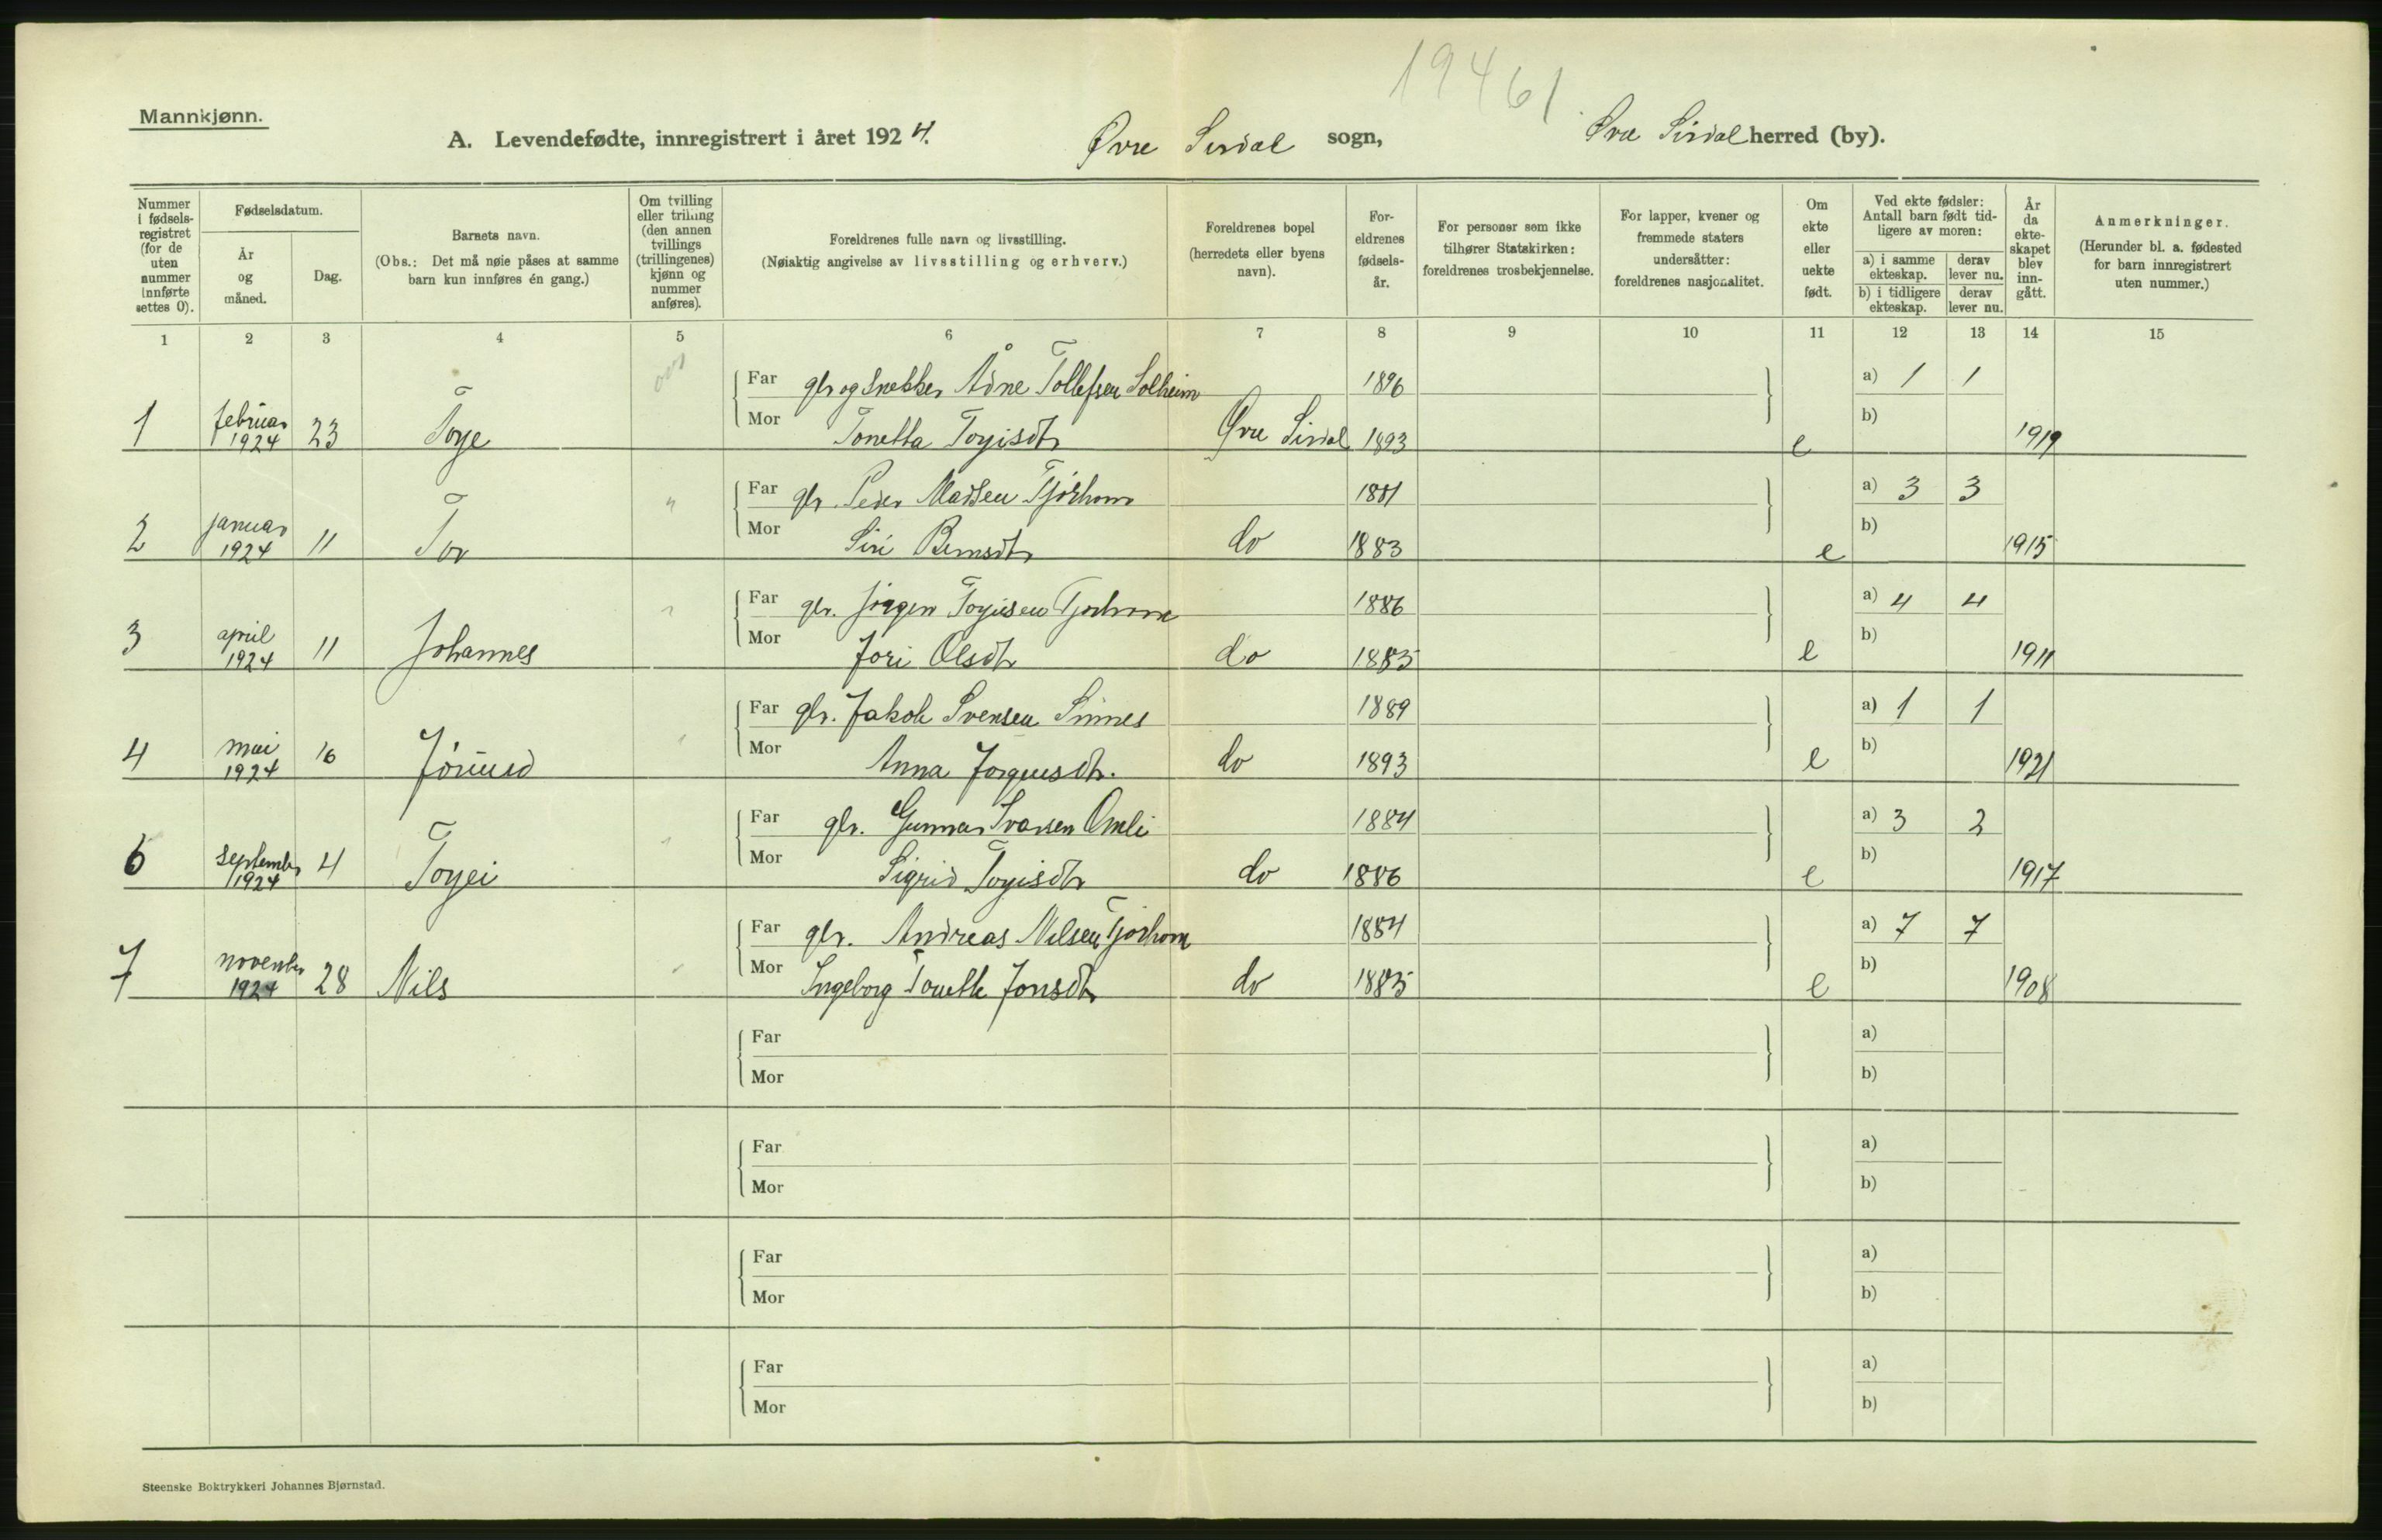 19461
Mannkjønn.
A. Levendefødte, innregistrert i året 1924. Øvre Sirdal sogn, Øvre Sirdal herred (by).
Nummer i fødsels-registret (for de uten nummer innførte settes 0).
Fødselsdatum.
År og måned.
Dag.
Barnets navn.
(Obs.: Det må nøie påses at samme barn kun innføres én gang.)
Om tvilling eller trilling (den annen tvillings (trillingenes) kjønn og nummer anføres).
Foreldrenes fulle navn og livsstilling.
(Nøiaktig angivelse av livsstilling og erhverv.)
Foreldrenes bopel (herredets eller byens navn).
For-eldrenes fødsels-år.
For personer som ikke tilhører Statskirken: foreldrenes trosbekjennelse.
For lapper, kvener og fremmede staters undersåtter: foreldrenes nasjonalitet.
Om ekte eller uekte født.
Ved ekte fødsler: Antall barn født tid-ligere av moren:
a) i samme ekteskap. derav lever nu.
b) i tidligere ekteskap. derav lever nu.
År da ekte-skapet blev inn-gått.
Anmerkninger.
(Herunder bl. a. fødested for barn innregistrert uten nummer.)
1 2 3 4 5 6 7 8 9 10 11 12 13 14 15
Far gbr og snekker Ådne Tollefsen Solheim 1896 a) 1 1
1 februar 1924 23 Toge Mor Tonetta Togisdtr Øvre Sirdal 1893 e b) 1919
Far gbr. Peder Madsen Tjørhom 1881 a) 3 3
2 januar 1924 11 Tor Mor Siri Berntsdtr do 1883 e b) 1915
Far gbr. Jørgen Togisen Tjorhom 1886 a) 4 4
3 april 1924 11 Johannes Mor Jori Olsdtr do 1885 e b) 1911
Far gbr. Jakob Svensen Sinnes 1889 a) 1 1
4 mai 1924 16 Mor Anna Jørgensdtr. do 1893 e b) 1921
Far gbr. Gunnar Ivarsen Omli 1884 a) 3 2
6 september 1924 4 Togei Mor Sigrid Togisdtr do 1886 e b) 1917
Far gbr. Andreas Nilsen Tjorhom 1884 a) 7 7
7 november 1924 28 Nils Mor Ingeborg Tonette Jonsdtr do 1885 e b) 1908
Far a)
Mor b)
Far a)
Mor b)
Far a)
Mor b)
Far a)
Mor b)
Steenske Boktrykkeri Johannes Bjørnstad.